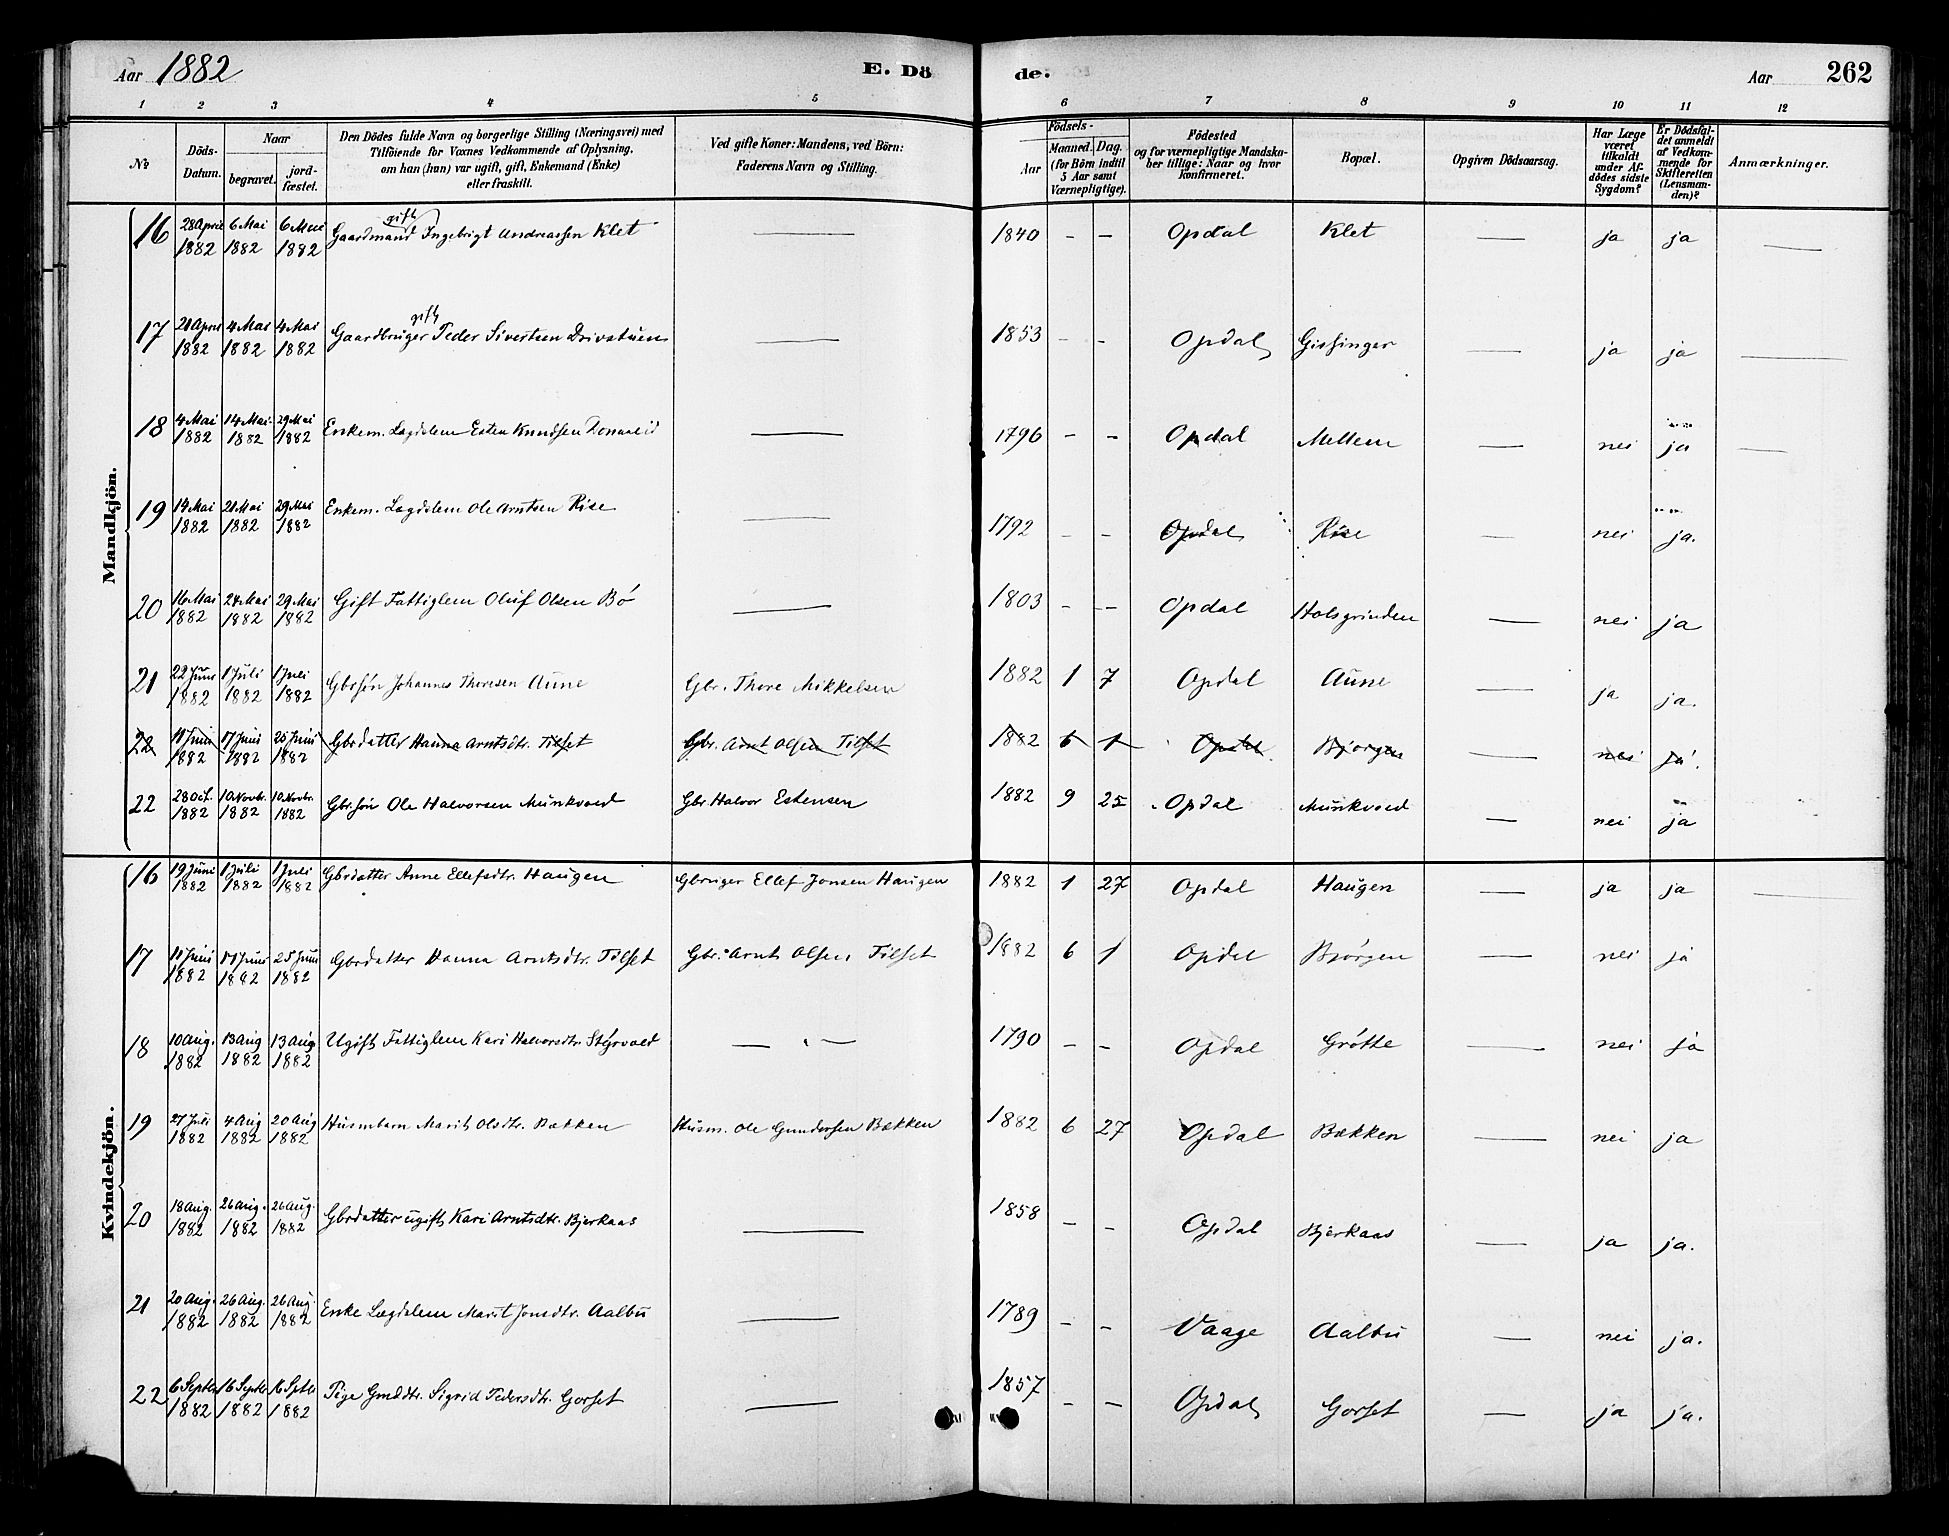 Aar 1882 E. Dö de. Aar 262
1 2 3 4 5 6 7 8 9 10 11 12
No
Döds-Datum.
Naar begravet. jordfæstet.
Den Dödes fulde Navn og borgerlige Stilling (Næringsvei) med
Tilföiende for Voxnes Vedkommende af Oplysning,
om han (hun) var ugift, gift, Enkemand (Enke)
eller fraskilt.
Ved gifte Koner: Mandens, ved Börn:
Faderens Navn og Stilling.
Födsels-
Aar
Maaned. Dag.
(for Börn indtil
5 Aar samt
Værnepligtige).
Födested
og for værnepligtige Mandska-
ber tillige: Naar og hvor
konfirmeret.
Bopæl.
Opgiven Dödsaarsag.
Har Læge
været
tilkaldt
under Af-
dödes sidste
Sygdom?
Er Dödsfal-
det anmeldt
af Vedkom-
mende for
Skifteretten
(Lensman-
den)?
Anmærkninger.
Mandkjön.
16 28 April 1882 6 Mai 1882 6 Mai 1882 Gaardmand gift Ingebrigt Andreassen Klet — 1840 - - Opdal Klet — ja ja —
17 21 April 1882 4 Mai 1882 4 Mai 1882 Gaardbruger gift Peder Sivertsen Drivstuen — 1853 - - Opdal Gissinger — ja ja —
18 4 Mai 1882 14 Mai 1882 29 Mai 1882 Enkem. Lægdslem Esten Knudsen — 1796 - - Opdal Mellem — nei ja —
19 14 Mai 1882 21 Mai 1882 29 Mai 1882 Enkem. Lægdslem Ole Arntsen Rise — 1792 - - Opdal Rise — nei ja.
20 16 Mai 1882 24 Mai 1882 29 Mai 1882 Gift Fattiglem Oluf Olsen Bö — 1803 - - Opdal Holsgrinden — nei ja
21 22 Juni 1882 1 Juli 1882 1 Juli 1882 Gbrsön Johannes Thoresen Aune Gbr. Thore Mikkelsen 1882 1 7 Opdal Aune — ja ja.
22 11 Juni 1882 17 Juni 1882 25 Juni 1882 Gbrdatter Hanna Arntsdtr. Tilset Gbr. Arnt Olsen Tilset 1882 6 1 Opdal Bjørgen — nei ja.
22 28 Oct. 1882 10 Novbr. 1882 10 Novbr. 1882 Gbr.sön Ole Halvorsen Munkvold Gbr. Halvor Estensen 1882 9 25 Opdal Munkvold — nei ja
Kvindekjön.
16 19 Juni 1882 1 Juli 1882 1 Juli 1882 Gbrdatter Anne Ellefsdtr. Haugen Gbruger Ellef Jonsen Haugen 1882 1 27 Opdal Haugen — ja ja —
17 11 Juni 1882 17 Juni 1882 25 Juni 1882 Gbrdatter Hanna Arntsdtr. Tilset Gbr. Arnt Olsen Tilset 1882 6 1 Opdal Bjørgen — nei ja
18 10 Aug. 1882 13 Aug 1882 13 Aug. 1882 Ugift Fattiglem Kari Halvorsdtr. Styrvold — " — 1790 - - Opdal Grøtte — nei ja
19 27 Juli 1882 4 Aug 1882 20 Aug 1882 Husmbarn Marit Olsdtr. Bækken Husm. Ole Gundersen Bækken 1882 6 27 Opdal Bækken — nei ja
20 18 Aug. 1882 26 Aug. 1882 26 Aug. 1882 Gbrdatter ugift Kari Arntsdtr. Bjerkaas — 1858 - - Opdal Bjerkaas — ja ja.
21 20 Aug. 1882 26 Aug. 1882 26 Aug. 1882 Enke Lægdslem Marit Jonsdtr. Aalbu — 1789 - - Vaage Aalbu — nei ja.
22 6 Septbr 1882 16 Septbr 1882 16 Sptbr 1882 Pige Gmddtr. Sigrid Pedersdtr. Gorset — 1857 - - Opdal Gorset — ja ja.